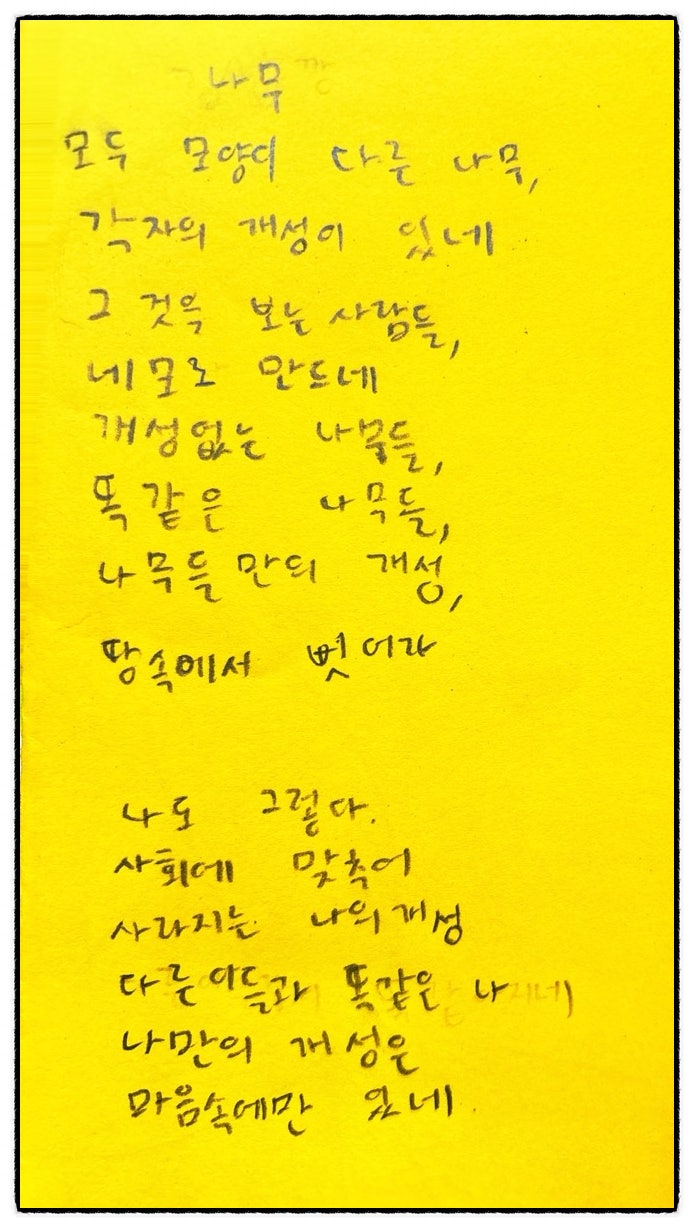 나무
모두 모양이 다른 나무,
각자의 개성이 있네
그 것을 보는 사람들,
네모로 만드네
개성없는 나무들,
똑같은 나무들,
나무들만의 개성,
땅속에서 벗어라
나도 그렇다.
사회에 맞추어
사라지는 나의 개성
다른이들과 똑같은 나
나만의 개성은
마음속에만 있네.